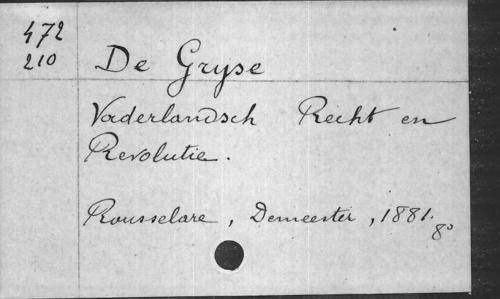 472
210
De Gryse
Vaderlandsch Recht en
Revolutie.
Rousselare, Demeester, 1881.
8º